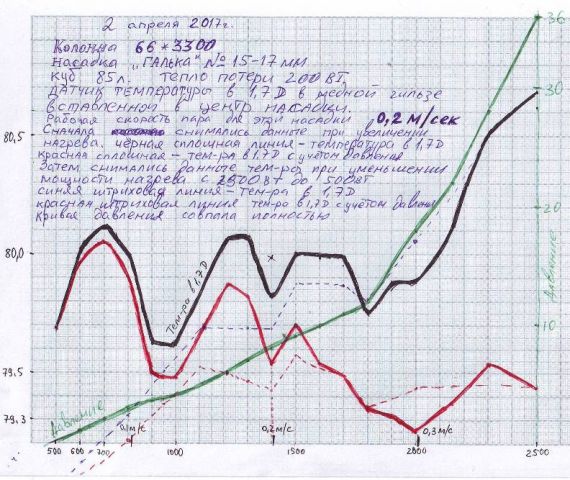 2 апреля 2017г.
Колонна 66*3300
Насадка „ГАЛЬКА" №15-17мм
Куб 85л. тепло потери 200ВТ.
ДАТЧИК ТЕМПЕРАТУРЫ в 1,7D в медной гильзе
вставленной в центр насадки.
Рабочая скорость пара для этой насадки 0,2 м/сек
Сначала снимались данные при увеличении
нагрева. чёрная сплошная линия - температура в 1,7D
красная сплошная - тем-ра в 1,7D с учётом давления
Затем снимались данные тем-ры при уменьшении
мощности нагрева с 2500Вт до 1500Вт
синяя штриховая линия - тем-ра в 1,7D
красная штриховая линия тем-ра в 1,7D с учётом давлен
кривая давления совпала полностью
36
30
20
10
Давление
80,5
80,0
79,5
79,3
Тем-ра в 1,7D
Давление
0,1м/с
0,2м/с
0,3м/с
500
600
700
1000
1500
2000
2500